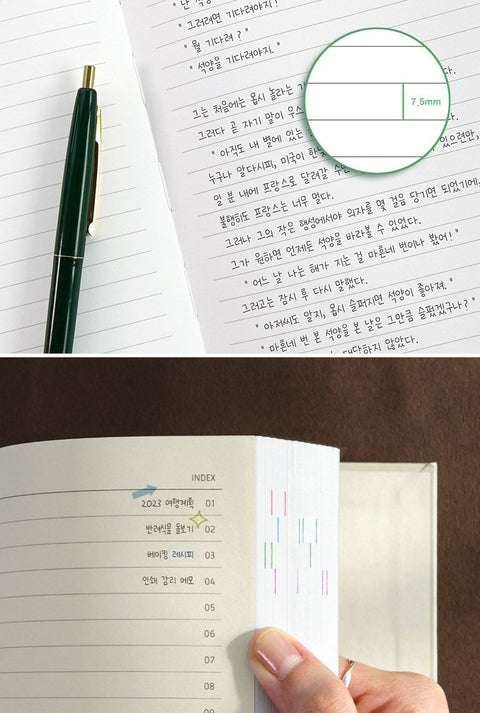 " 그러려면 기다려야지! "
" 뭘 기다려 ? "
" 석양을 기다려야지. "
그는 처음에는 몹시 놀라는 기
그러다 곧 자기 말이 우스
다.
" 아직도 내 별에 있는
7.5mm
누구나 알다시피, 미국이 한낮
있으련만,
일 분 내에 프랑스로 달려갈 수만
불행히도 프랑스는 너무 멀다.
그러나 그의 작은 행성에서야 의자를 몇 걸음 당기면 되었기에,
그가 원하면 언제든 석양을 바라볼 수 있었다.
" 어느 날 나는 해가 지는 걸 마흔네 번이나 봤어! "
그러고는 잠시 후 다시 말했다.
" 아저씨도 알지, 몹시 슬퍼지면 석양이 좋아져. "
" 마흔네 번 본 석양을 본 날은 그만큼 슬펐겠구나? "
대답하지 않았다.
INDEX
2023 여행계획 01
반려식물 돌보기 02
베이킹 레시피 03
인쇄 감리 메모 04
05
06
07
08